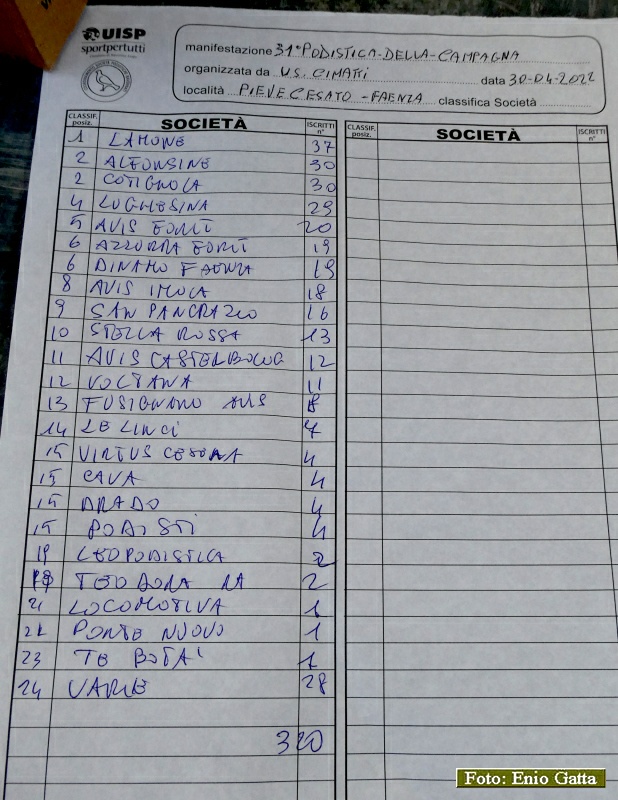 UISP
sportpertutti
manifestazione 31ª PODISTICA-DELLA-CAMPAGNA
organizzata da U.S. CIMATTI data 30-04-2022
località PIEVE CESATO - FAENZA classifica Società
CLASSIF. posiz. SOCIETÀ ISCRITTI n° CLASSIF. posiz. SOCIETÀ ISCRITTI n°
1 LAMONE 37
2 ALFONSINE 30
2 COTIGNOLA 30
4 LUGHESINA 29
5 AVIS FORLÌ 20
6 AZZURRA FORLÌ 19
6 DINAMO FAENZA 19
8 AVIS IMOLA 18
9 SAN PANCRAZIO 16
10 STELLA ROSSA 13
11 AVIS CASTELBOLOG 12
12 VOLTANA 11
13 FUSIGNANO AVIS 8
14 LE LINCI 7
15 VIRTUS CESENA 4
15 CAVA 4
15 DRADO 4
15 PODISTI 4
19 LEOPODISTICA 2
19 TEODORA RA 2
21 LOCOMOTIVA 1
21 PONTE NUOVO 1
23 TE BOTA' 1
24 VARIE 28
320
Foto: Enio Gatta